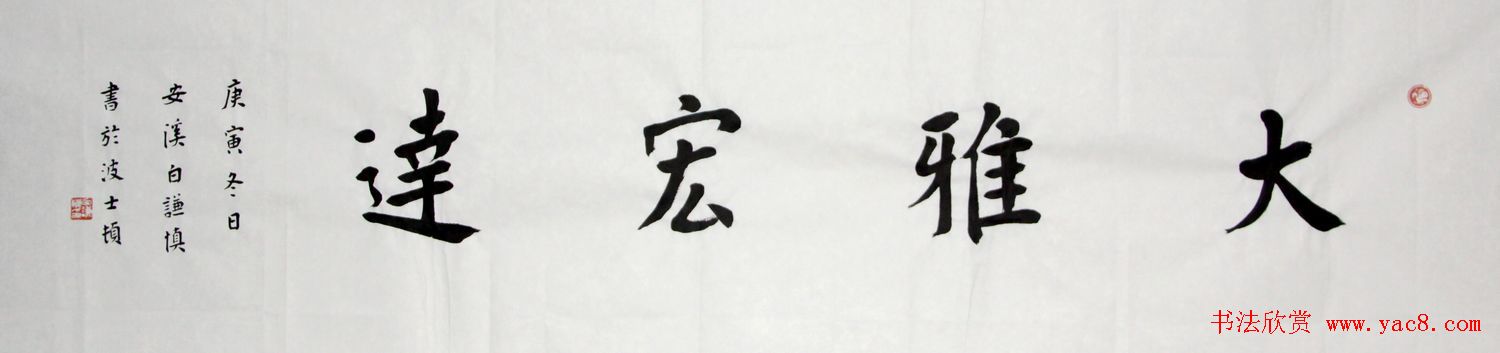 大雅宏達
庚寅冬日
安溪白謙慎
書於波士頓
书法欣赏 www.yac8.com